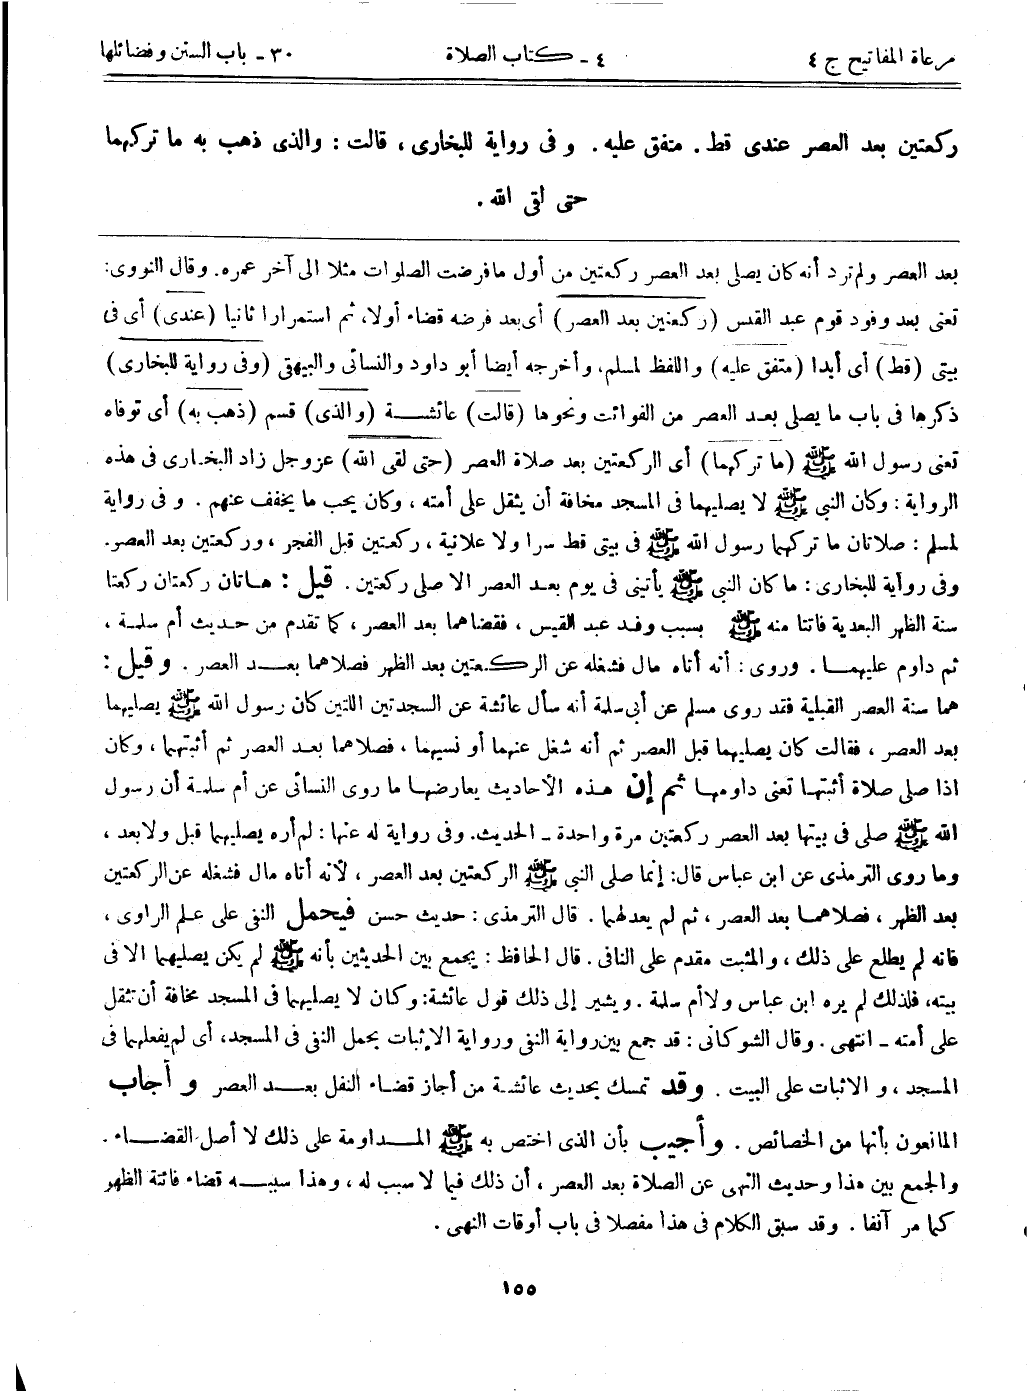 مرعاة المفاتيح ج ٤
٤ - كتاب الصلاة
٣٠ - باب السنن وفضائلها
ركعتين بعد العصر عندى قط. متفق عليه. وفى رواية للبخارى، قالت: والذى ذهب به ما تركهما
حتى لقى الله.
بعد العصر ولم ترد أنه كان يصلى بعد العصر ركعتين من أول ما فرضت الصلوات مثلا الى آخر عمره. وقال النووى:
تعنى بعد وفود قوم عبد القيس (ركعتين بعد العصر) أى بعد فرضه قضاء أولا، ثم استمرارا ثانيا (عندى) أى فى
بيتى (قط) أى أبدا (متفق عليه) واللفظ لمسلم، وأخرجه أيضا أبو داود والنسائى والبيهقى (وفى رواية للبخارى)
ذكرها فى باب ما يصلى بعد العصر من الفوائت ونحوها (قالت) عائشة (والذى) قسم (ذهب به) أى توفاه
تعنى رسول الله ﷺ (ما تركهما) أى الركعتين بعد صلاة العصر (حتى لقى الله) عزوجل زاد البخارى فى هذه
الرواية: وكان النبى ﷺ لا يصليهما فى المسجد مخافة أن يثقل على أمته، وكان يحب ما يخفف عنهم. وفى رواية
لمسلم: صلاتان ما تركهما رسول الله ﷺ فى بيتى قط سرا ولا علانية، ركعتين قبل الفجر، وركعتين بعد العصر.
وفى رواية للبخارى: ما كان النبى ﷺ يأتينى فى يوم بعد العصر الا صلى ركعتين. قيل: هاتان ركعتان ركعتا
سنة الظهر البعدية فاتتا منه ﷺ بسبب وفد عبد القيس، فقضاهما بعد العصر، كما تقدم من حديث أم سلمة،
ثم داوم عليهما. وروى: أنه أتاه مال فشغله عن الركعتين بعد الظهر فصلاهما بعد العصر. وقيل:
هما سنة العصر القبلية فقد روى مسلم عن أبى سلمة أنه سأل عائشة عن السجدتين اللتين كان رسول الله ﷺ يصليهما
بعد العصر، فقالت كان يصليهما قبل العصر ثم أنه شغل عنهما أو نسيهما، فصلاهما بعد العصر ثم أثبتهما، وكان
اذا صلى صلاة أثبتها تعنى داومها ثم إن هذه الأحاديث يعارضها ما روى النسائى عن أم سلمة أن رسول
الله ﷺ صلى فى بيتها بعد العصر ركعتين مرة واحدة - الحديث. وفى رواية له عنها: لم أره يصليهما قبل ولا بعد،
وما روى الترمذى عن ابن عباس قال: إنما صلى النبى ﷺ الركعتين بعد العصر، لأنه أتاه مال فشغله عن الركعتين
بعد الظهر، فصلاهما بعد العصر، ثم لم يعد لهما. قال الترمذى: حديث حسن فيحمل النفى على علم الراوى،
فانه لم يطلع على ذلك، والمثبت مقدم على النافى. قال الحافظ: يجمع بين الحديثين بأنه ﷺ لم يكن يصليهما الا فى
بيته، فلذلك لم يره ابن عباس ولا أم سلمة. ويشير إلى ذلك قول عائشة: وكان لا يصليهما فى المسجد مخافة أن تثقل
على أمته - انتهى. وقال الشوكانى: قد جمع بين رواية النفى ورواية الإثبات بحمل النفى فى المسجد، أى لم يفعلهما فى
المسجد، والاثبات على البيت. وقد تمسك بحديث عائشة من أجاز قضاء النفل بعد العصر وأجاب
المانعون بأنها من الخصائص. وأجيب بأن الذى اختص به ﷺ المداومة على ذلك لا أصل القضاء.
والجمع بين هذا وحديث النهى عن الصلاة بعد العصر، أن ذلك فيما لا سبب له، وهذا سببه قضاء فائتة الظهر
كما مر آنفا. وقد سبق الكلام فى هذا مفصلا فى باب أوقات النهى.
١٥٥